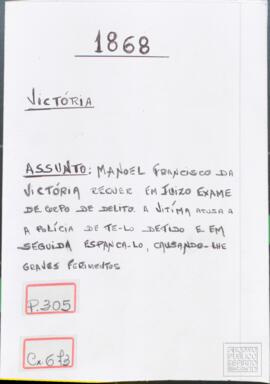 1868
VICTÓRIA
ASSUNTO: MANOEL FRANCISCO DA
VICTÓRIA REQUER EM JUIZO EXAME
DE CORPO DE DELITO. A VITÍMA ACUSA A
A POLÍCIA DE TE-LO DETIDO E EM
SEGUIDA ESPANCA-LO, CAUSANDO-LHE
GRAVES FERIMENTOS
P.305